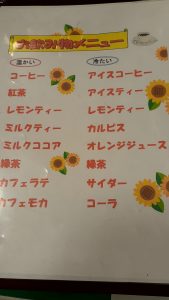 お飲み物メニュー
温かい 冷たい
コーヒー アイスコーヒー
紅茶 アイスティー
レモンティー レモンティー
ミルクティー カルピス
ミルクココア オレンジジュース
緑茶 緑茶
カフェラテ サイダー
カフェモカ コーラ